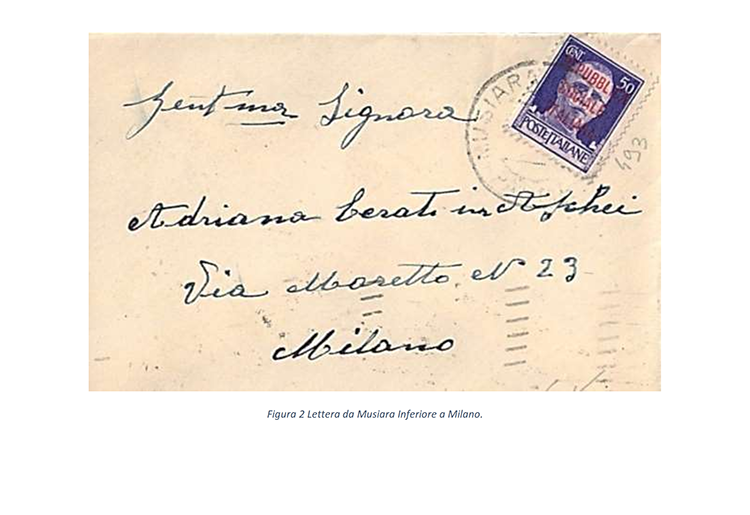 Gent ma Signora
Adriana Cerati in Aschei
Via Moretto N 23
Milano
CENT. 50
REPUBBLICA
SOCIALE
ITALIANA
POSTE ITALIANE
MUSIARA
493
Figura 2 Lettera da Musiara Inferiore a Milano.